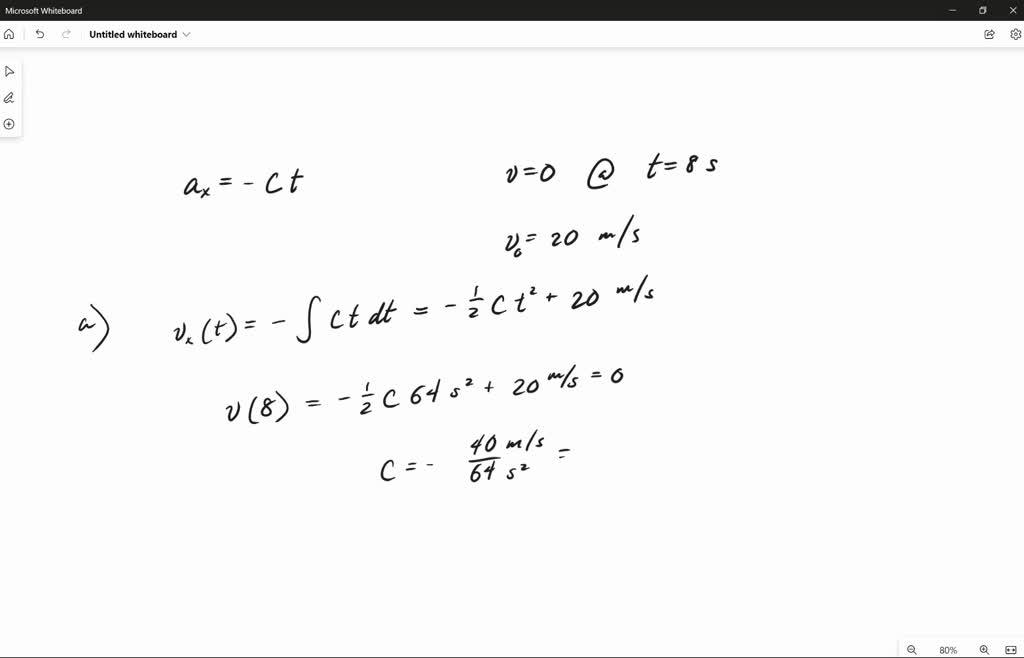 Microsoft Whiteboard
Untitled whiteboard
aₓ = - C t
v=0 @ t=8 s
v₀= 20 m/s
a) vₓ(t)= - ∫ C t dt = - 1/2 C t² + 20 m/s
v(8) = - 1/2 C 64 s² + 20 m/s = 0
C = - 40 m/s / 64 s² =
80%